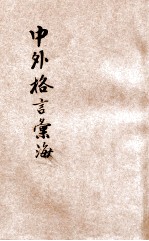 中外格言彙海